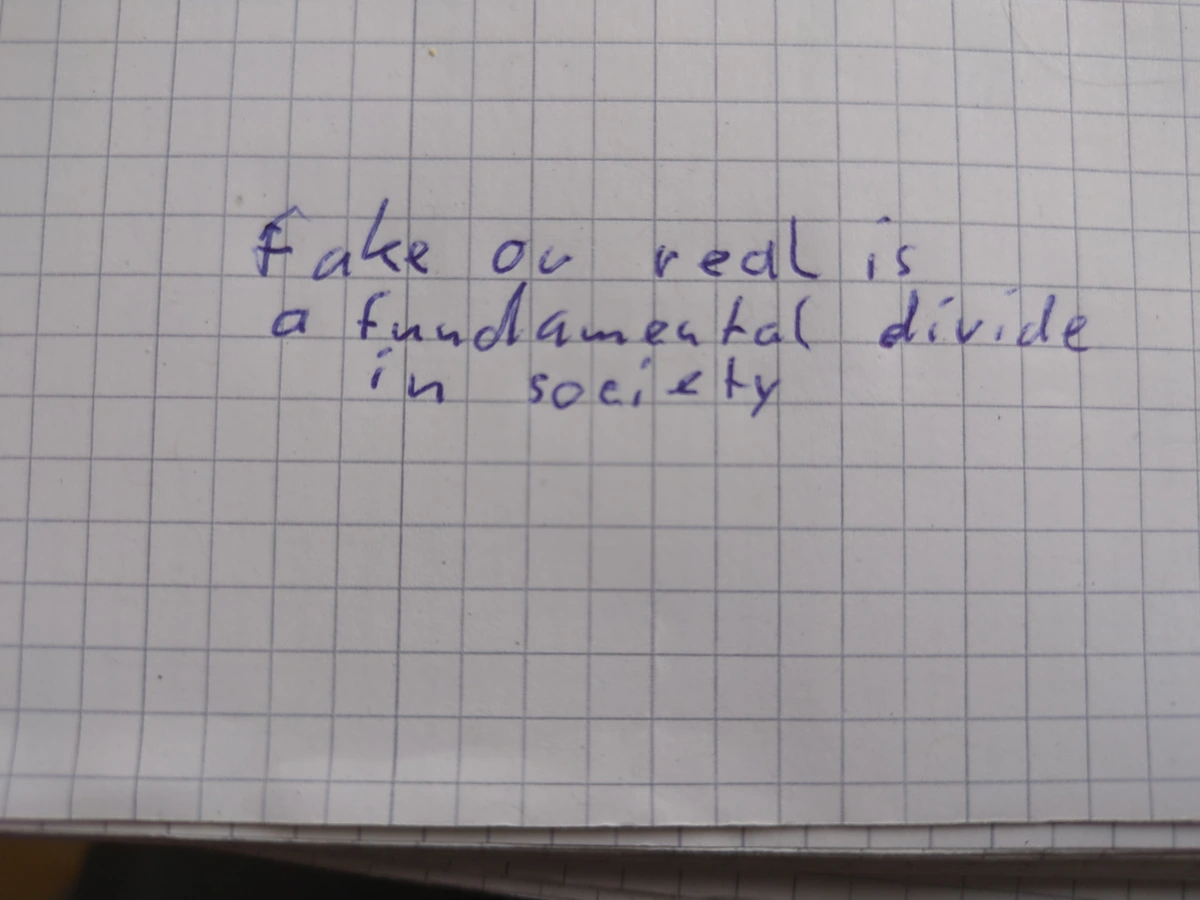 Fake or real is
a fundamental divide
in society